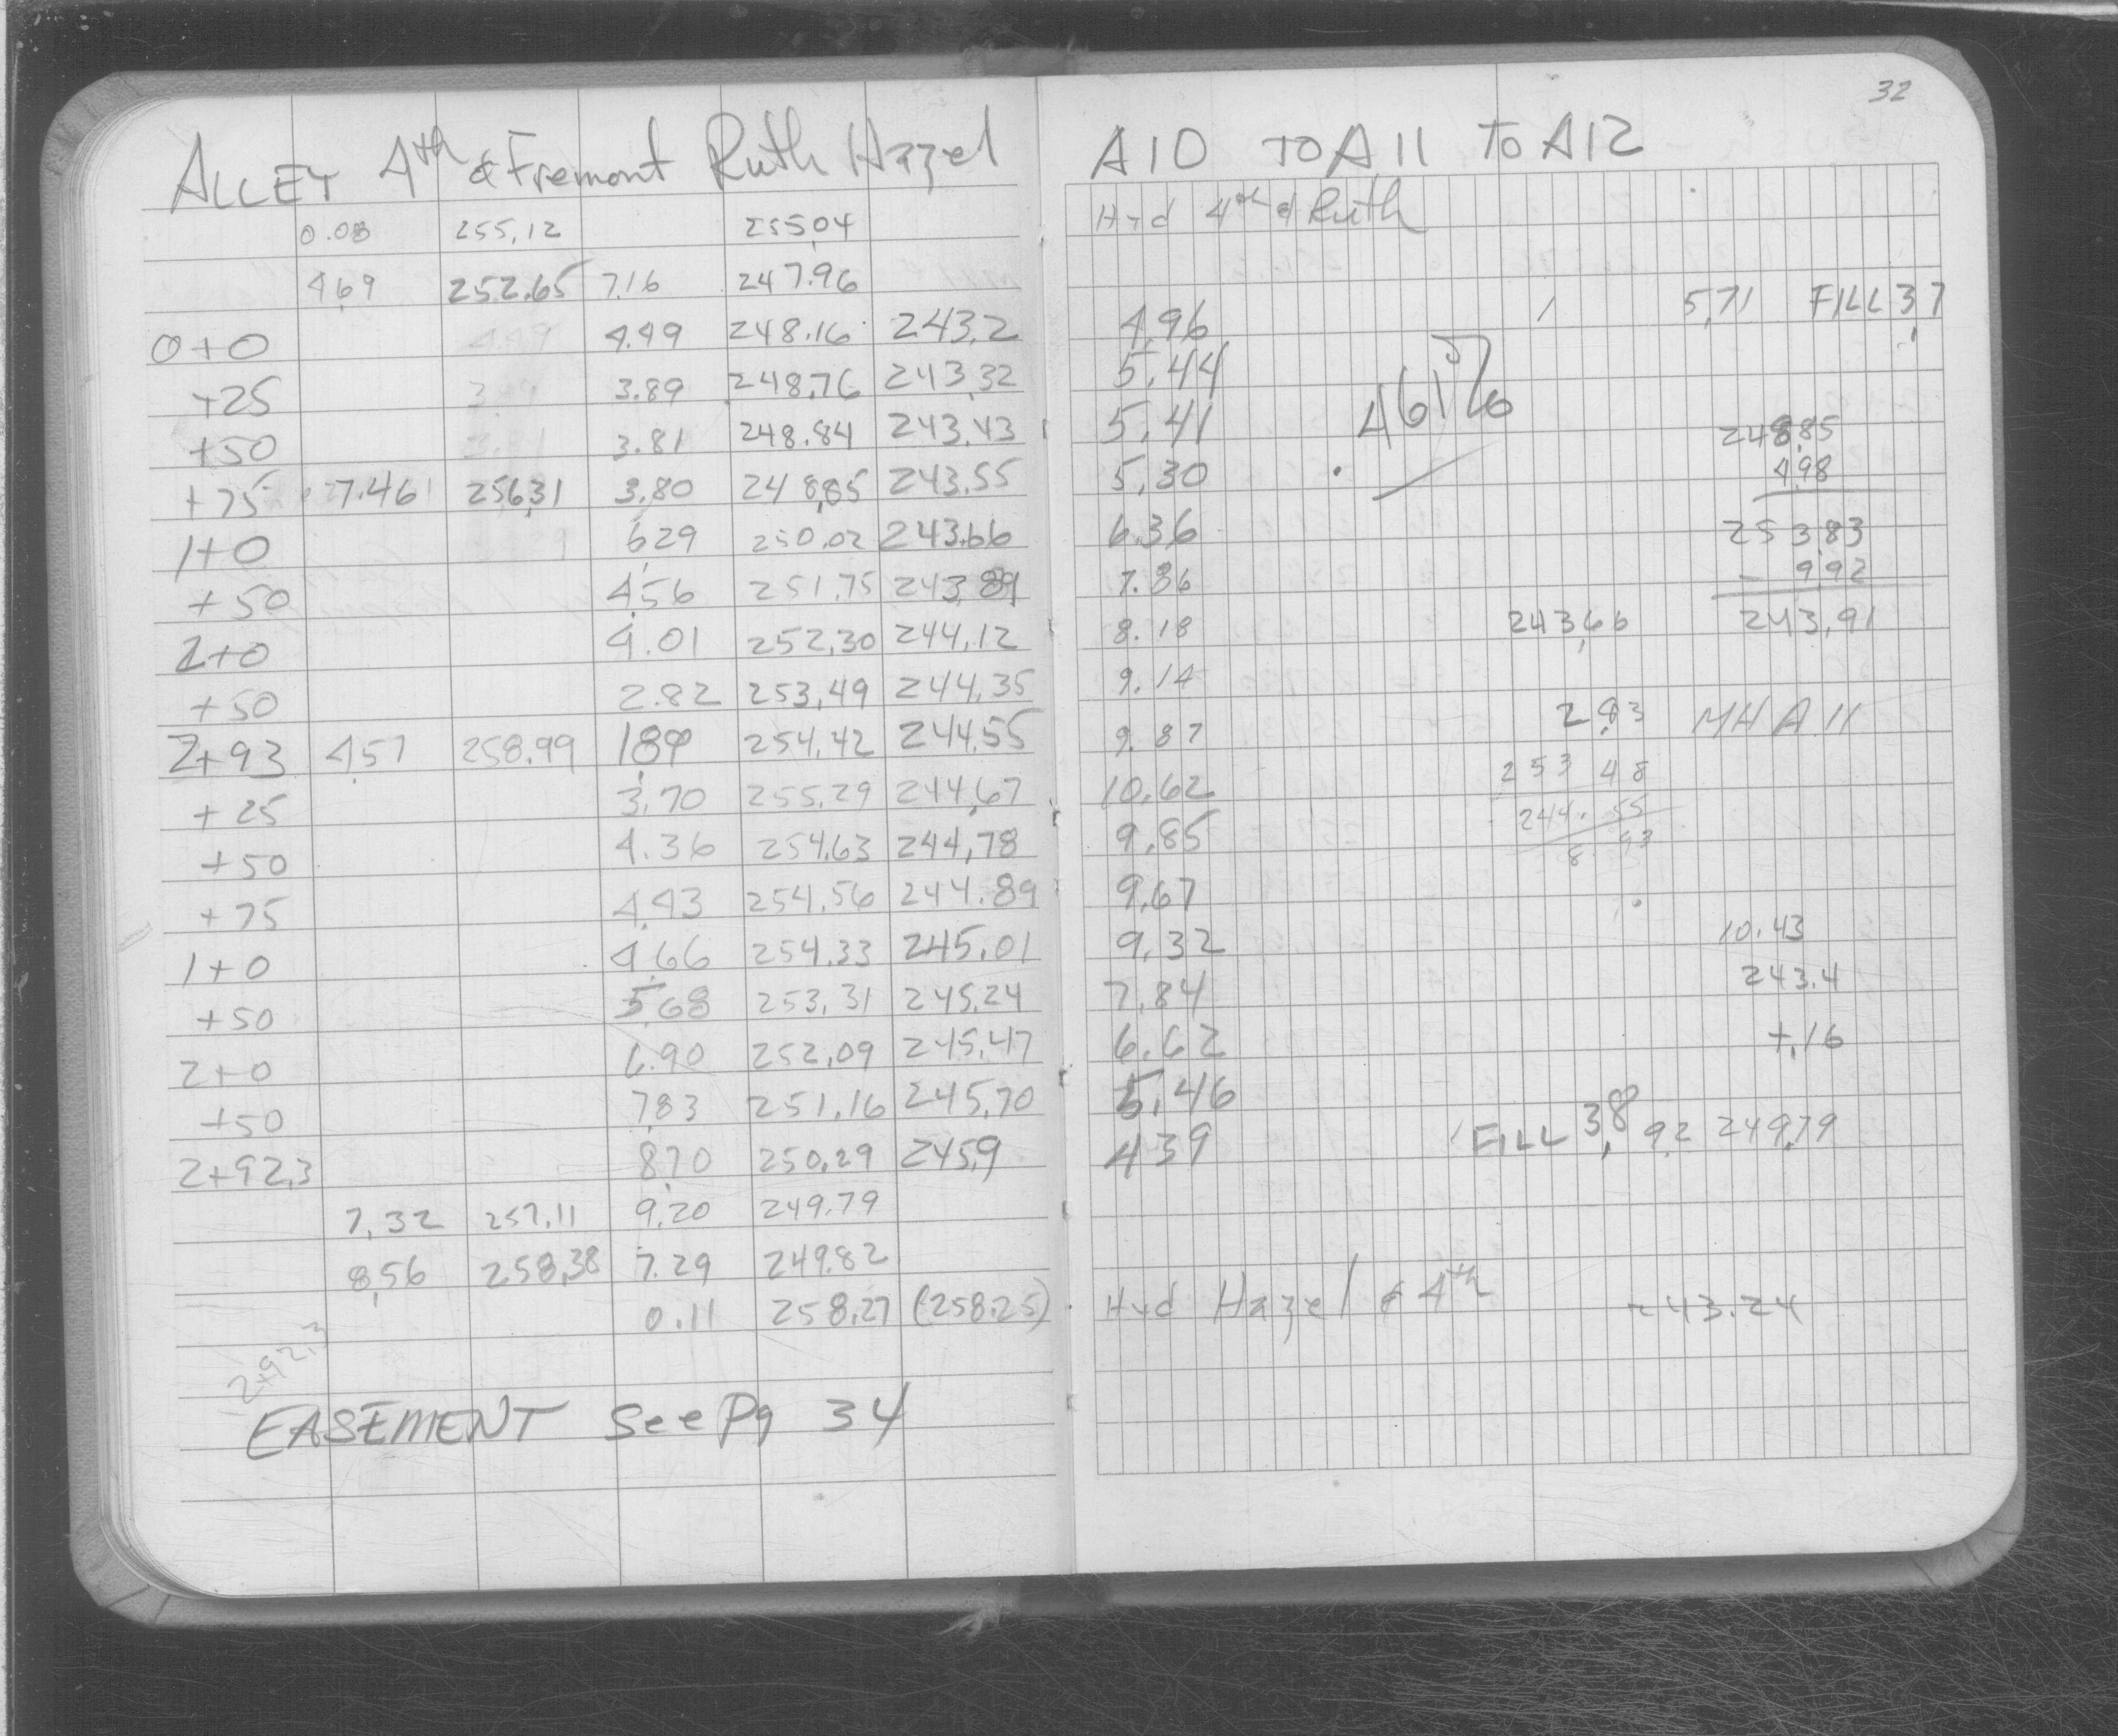 32
ALLEY 4th & Fremont Ruth Hazel
0.08 255.12 255.04
4.69 252.65 7.16 247.96
0+0 4.49 248.16 243.2
+25 3.89 248.76 243.32
+50 3.81 248.84 243.43
+75 7.46 256.31 3.80 248.85 243.55
1+0 6.29 250.02 243.66
+50 4.56 251.75 243.89
2+0 4.01 252.30 244.12
+50 2.82 253.49 244.35
2+93 4.57 258.99 1.89 254.42 244.55
+25 3.70 255.29 244.67
+50 4.36 254.63 244.78
+75 4.43 254.56 244.89
1+0 4.66 254.33 245.01
+50 5.68 253.31 245.24
2+0 6.90 252.09 245.47
+50 7.83 251.16 245.70
2+92.3 8.70 250.29 245.9
7.32 257.11 9.20 249.79
8.56 258.38 7.29 249.82
0.11 258.27 (258.25)
2+92.3
EASEMENT See Pg 34
A10 TO A11 TO A12
Hyd 4th & Ruth
5.71 FILL 3.7
4.96
5.44
5.41 .461%
5.30
6.36
7.86
8.18
9.14
9.87
10.62
9.85
9.67
9.32
7.84
6.62
5.46
4.39
248.85
4.98
253.83
- 9.92
243.66 243.91
2.93 MH A 11
253 48
244.55
8.93
10.43
243.4
+.16
FILL 3.8 9.2 249.79
Hyd Hazel & 4th 243.24